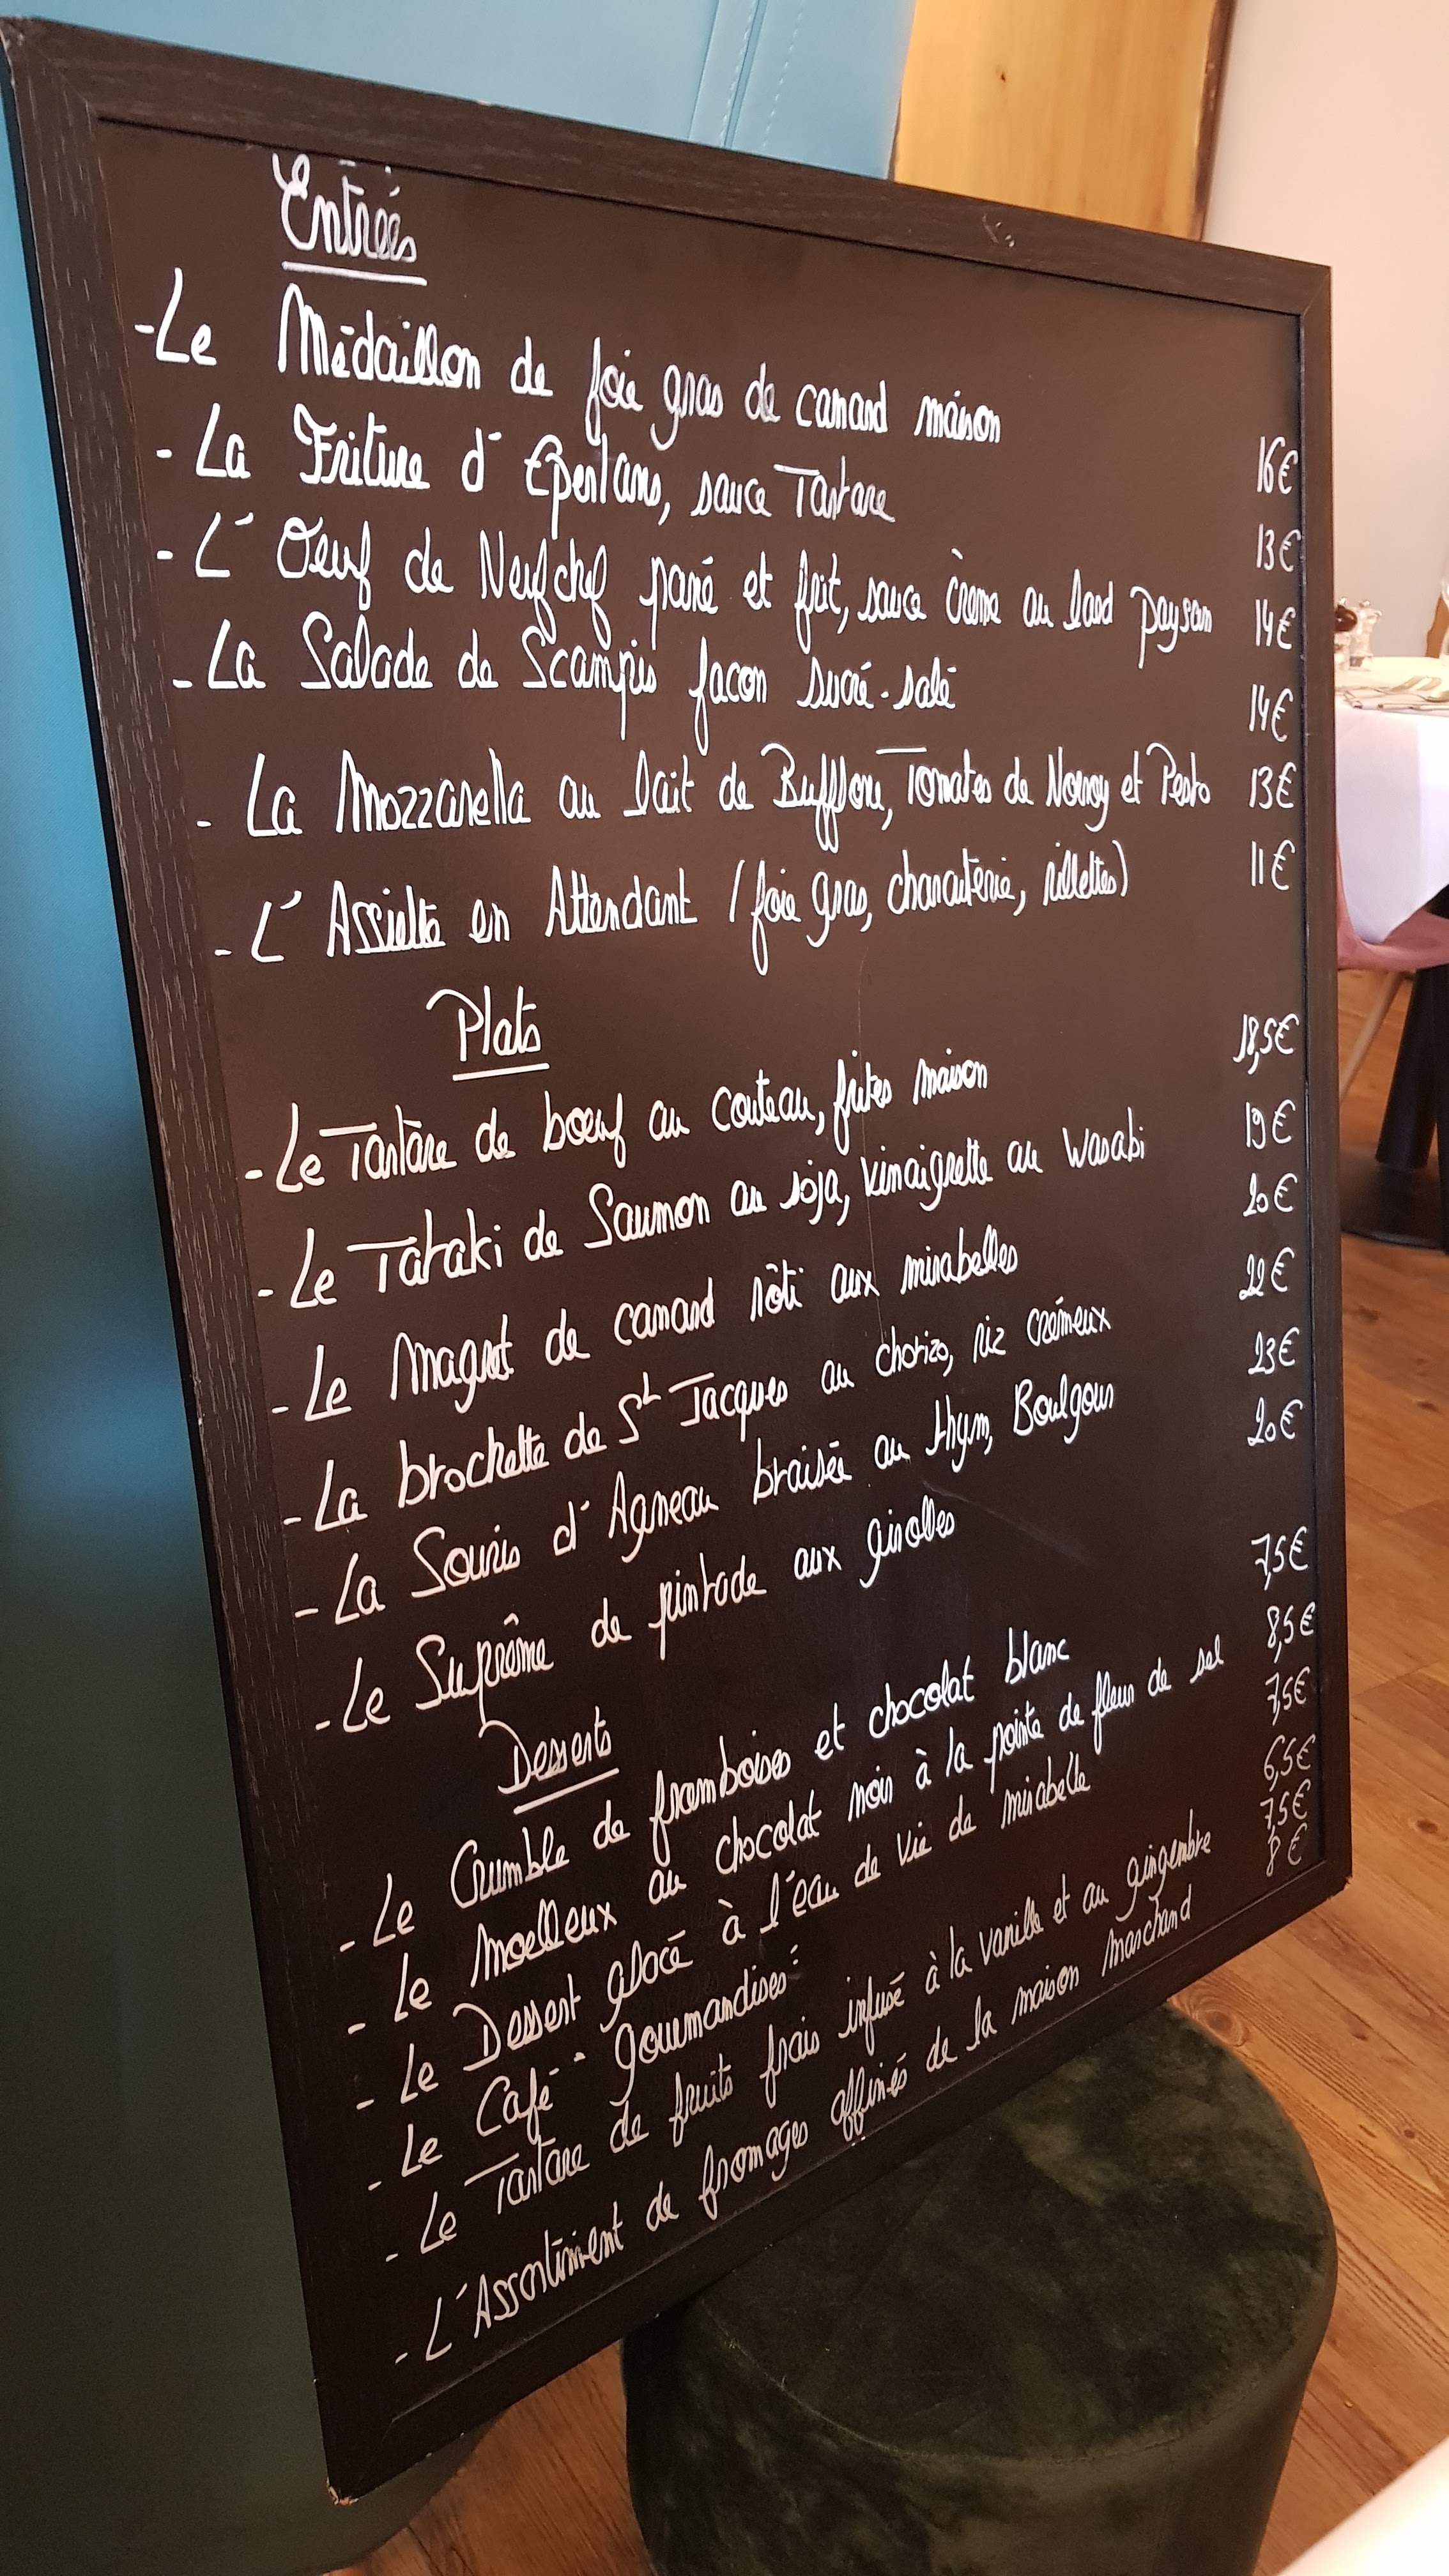 Entrées
-Le Médaillon de foie gras de canard maison 16€
- La Friture d'Eperlans, sauce Tartare 13€
- L'Oeuf de Neufchef pané et frit, sauce crème au lard paysan 14€
- La Salade de Scampis facon sucré-salé 14€
- La Mozzarella au lait de Bufflone, Tomates de Nomny et Pesto 13€
- L'Assiette en Attendant (foie gras, charcuterie, rillettes) 11€
Plats
- Le Tartare de bœuf au couteau, frites maison 18,5€
- Le Tataki de Saumon au soja, vinaigrette au Wasabi 19€
- Le Magret de canard rôti aux mirabelles 20€
- La brochette de St Jacques au chorizo, riz crémeux 22€
- La Souris d'Agneau braisée au thym, Boulgour 23€
- Le Suprême de pintade aux girolles 20€
Desserts
- Le Crumble de framboises et chocolat blanc 7,5€
- Le Moelleux au chocolat noir à la pointe de fleur de sel 8,5€
- Le Dessert glacé à l'eau de vie de mirabelle 7,5€
- Le Café "Gourmandises" 6,5€
- Le Tartare de fruits frais infusé à la vanille et au gingembre 7,5€
- L'Assortiment de fromages affinés de la maison Marchand 8€